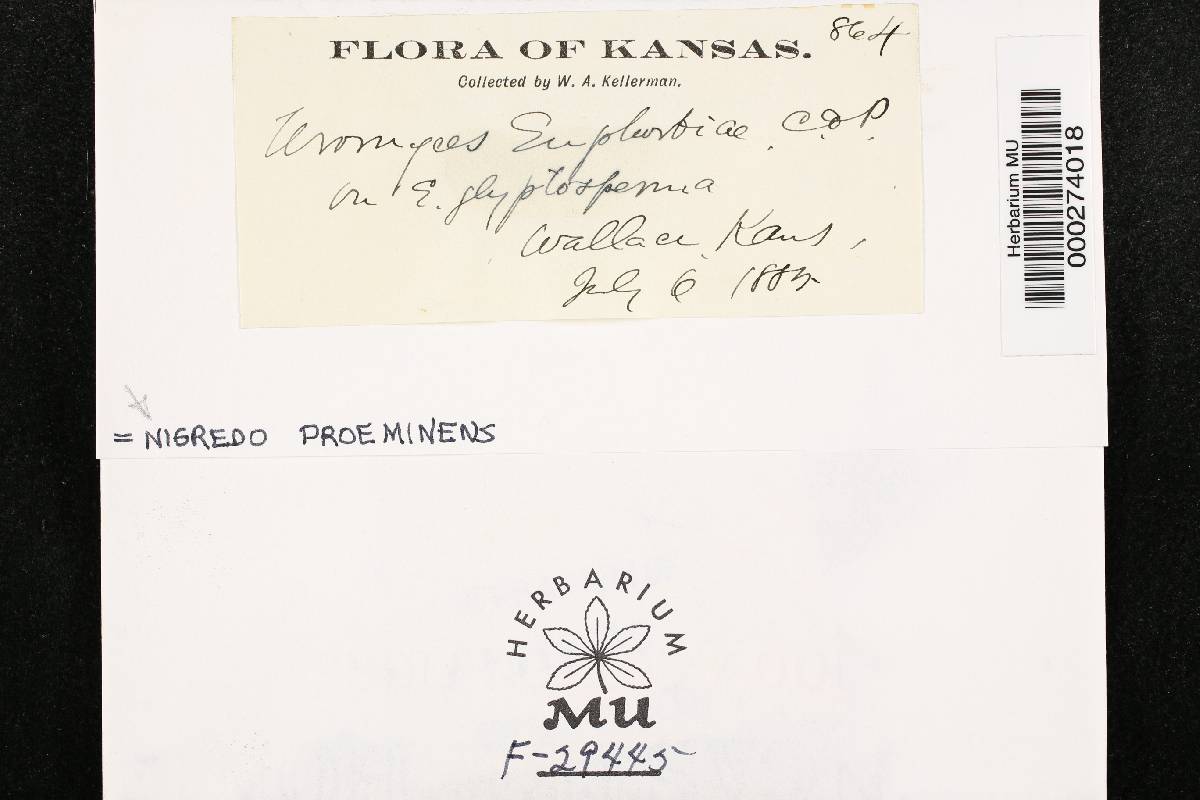 FLORA OF KANSAS.
864
Collected by W. A. Kellerman.
Uromyces Euphorbiae, C&P.
on E. glyptosperma
Wallace, Kans,
July 6 1885
Herbarium MU
000274018
= NIGREDO PROEMINENS
HERBARIUM
MU
F-29445